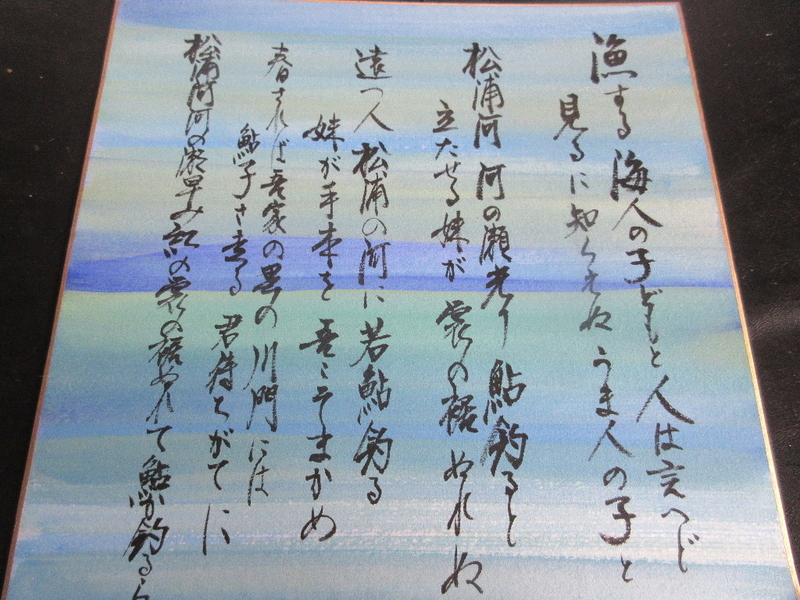 漁する海人の子どもと人は言へど
見るに知らえぬうま人の子と
松浦河河の瀬光り鮎釣ると
立たせる妹が裳の裾ぬれぬ
遠つ人松浦の河に若鮎釣る
妹が手本を吾こそまかめ
春されば吾家の里の川門には
鮎子さ走る君待ちがてに
松浦河河の瀬早み紅の裳の裾ぬれて鮎か釣るら